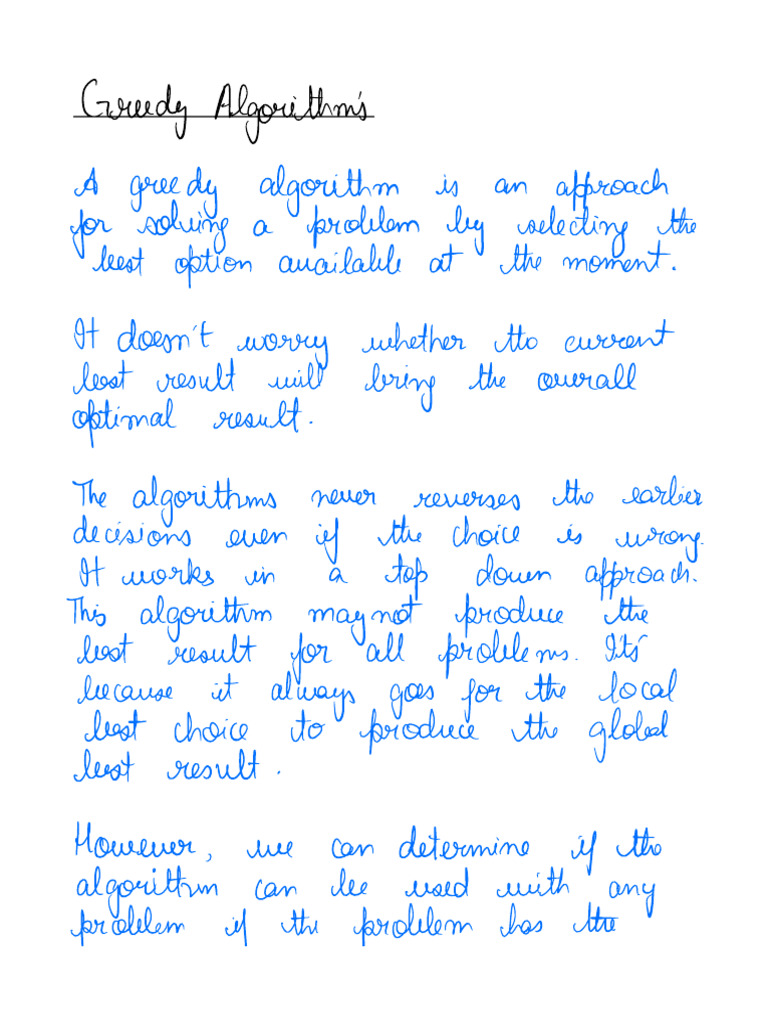 Greedy Algorithm's
A greedy algorithm is an approach
for solving a problem by selecting the
best option available at the moment.
It doesn't worry whether the current
best result will bring the overall
optimal result.
The algorithms never reverses the earlier
decisions even if the choice is wrong.
It works in a top down approach.
This algorithm may not produce the
best result for all problems. It's
because it always goes for the local
best choice to produce the global
best result.
However, we can determine if the
algorithm can be used with any
problem if the problem has the